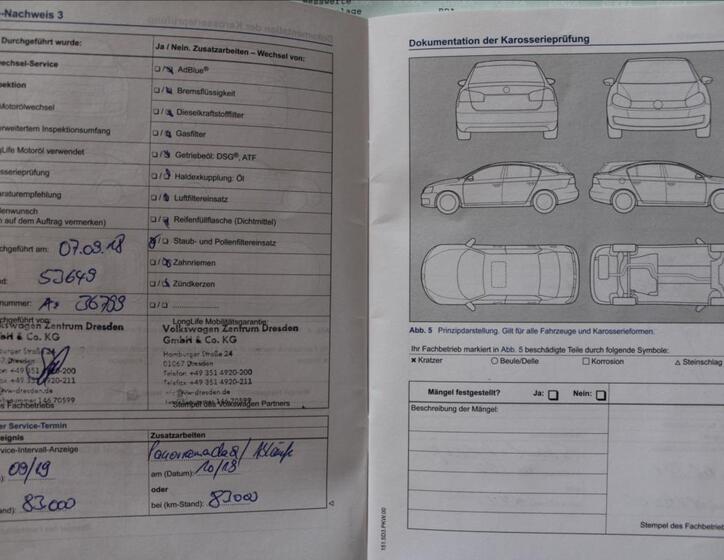 -Nachweis 3
Durchgeführt wurde:
Ja / Nein. Zusatzarbeiten – Wechsel von:
echsel-Service
AdBlue®
pektion
Bremsflüssigkeit
Motorölwechsel
Dieselkraftstofffilter
rweitertem Inspektionsumfang
Gasfilter
gLife Motoröl verwendet
Getriebeöl: DSG®, ATF
sserieprüfung
Haldexkupplung: Öl
araturempfehlung
Luftfiltereinsatz
denwunsch
n auf dem Auftrag vermerken)
Reifenfüllflasche (Dichtmittel)
chgeführt am: 07.09.18
Staub- und Pollenfiltereinsatz
Zahnriemen
nd: 53649
Zündkerzen
nummer: 36799
chgeführt von:
LongLife Mobilitätsgarantie:
swagen Zentrum Dresden
Volkswagen Zentrum Dresden
GmbH & Co. KG
Hamburger Straße 24
01067 Dresden
Telefon +49 351 4920-200
Telefax +49 351 4920-211
s Fachbetriebs
Stempel des Volkswagen Partners
er Service-Termin
eignis
Zusatzarbeiten
rvice-Intervall-Anzeige
09/19
am (Datum): 10/18
oder
and): 83000
bei (km-Stand): 83000
Dokumentation der Karosserieprüfung
Abb. 5 Prinzipdarstellung. Gilt für alle Fahrzeuge und Karosserieformen.
Ihr Fachbetrieb markiert in Abb. 5 beschädigte Teile durch folgende Symbole:
× Kratzer ○ Beule/Delle □ Korrosion △ Steinschlag
Mängel festgestellt? Ja: Nein:
Beschreibung der Mängel:
Stempel des Fachbetrieb
151.5D3.PKW.00